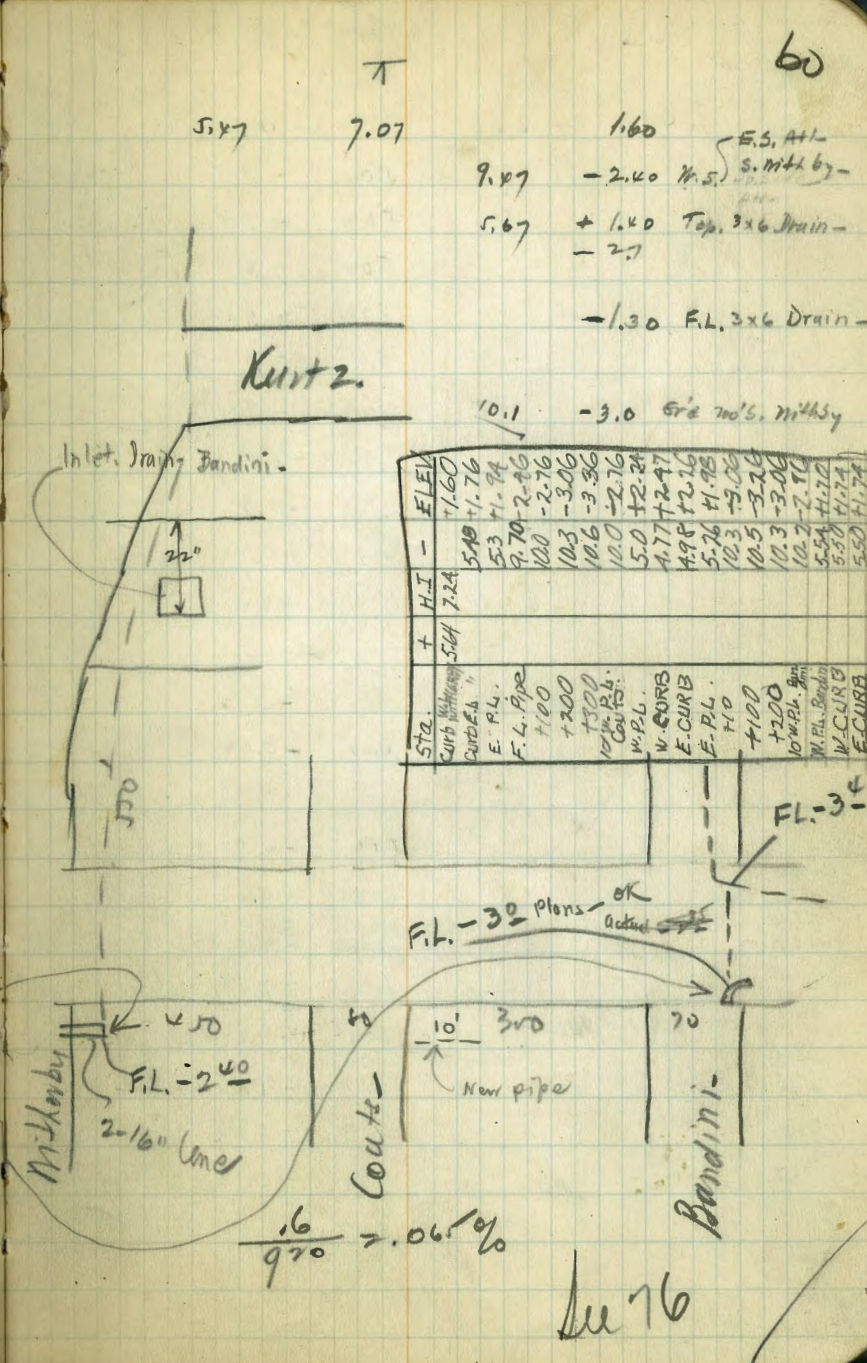 60
5.47 7.07 1.60 E.S. Atl
9.47 - 2.40 W.S. S. Withby-
5.67 + 1.40 Top. 3x6 Drain-
- 2.7
-1.30 F.L. 3x6 Drain-
Kurtz.
10.1 -3.0 Gr'd 700'S. Withby
Inlet. Drain, Bandini-
22"
Sta. + H.I - ELEV
Curb 5.64 7.24 +1.60
Curb E.L. " 5.48 +1.76
E. P.L. 5.3 +1.94
F.L. Pipe 9.70 -2.46
+100 10.0 -2.76
+200 10.3 -3.06
+300 10.6 -3.36
10'W. P.L. Couts. 10.0 -2.76
W.P.L. 5.0 +2.24
W. CURB 4.77 +2.47
E. CURB 4.98 +2.26
E.P.L. 5.26 +1.98
+10 10.3 -3.06
+100 10.5 -3.26
+200 10.3 -3.06
10'W.P.L. Ban dini 10.2 -2.96
W.P.L. Bandini 5.54 +1.70
W.CURB 5.50 +1.74
E.CURB 5.50 +1.74
550
F.L.-3 4
F.L. -3 0 Plans - OK
Actual
450 80 10' 300 70
F.L. -2 40
New pipe
2-16" Conc
Witherby
Couts-
Bandini-
.6
920 = .065%
See 76